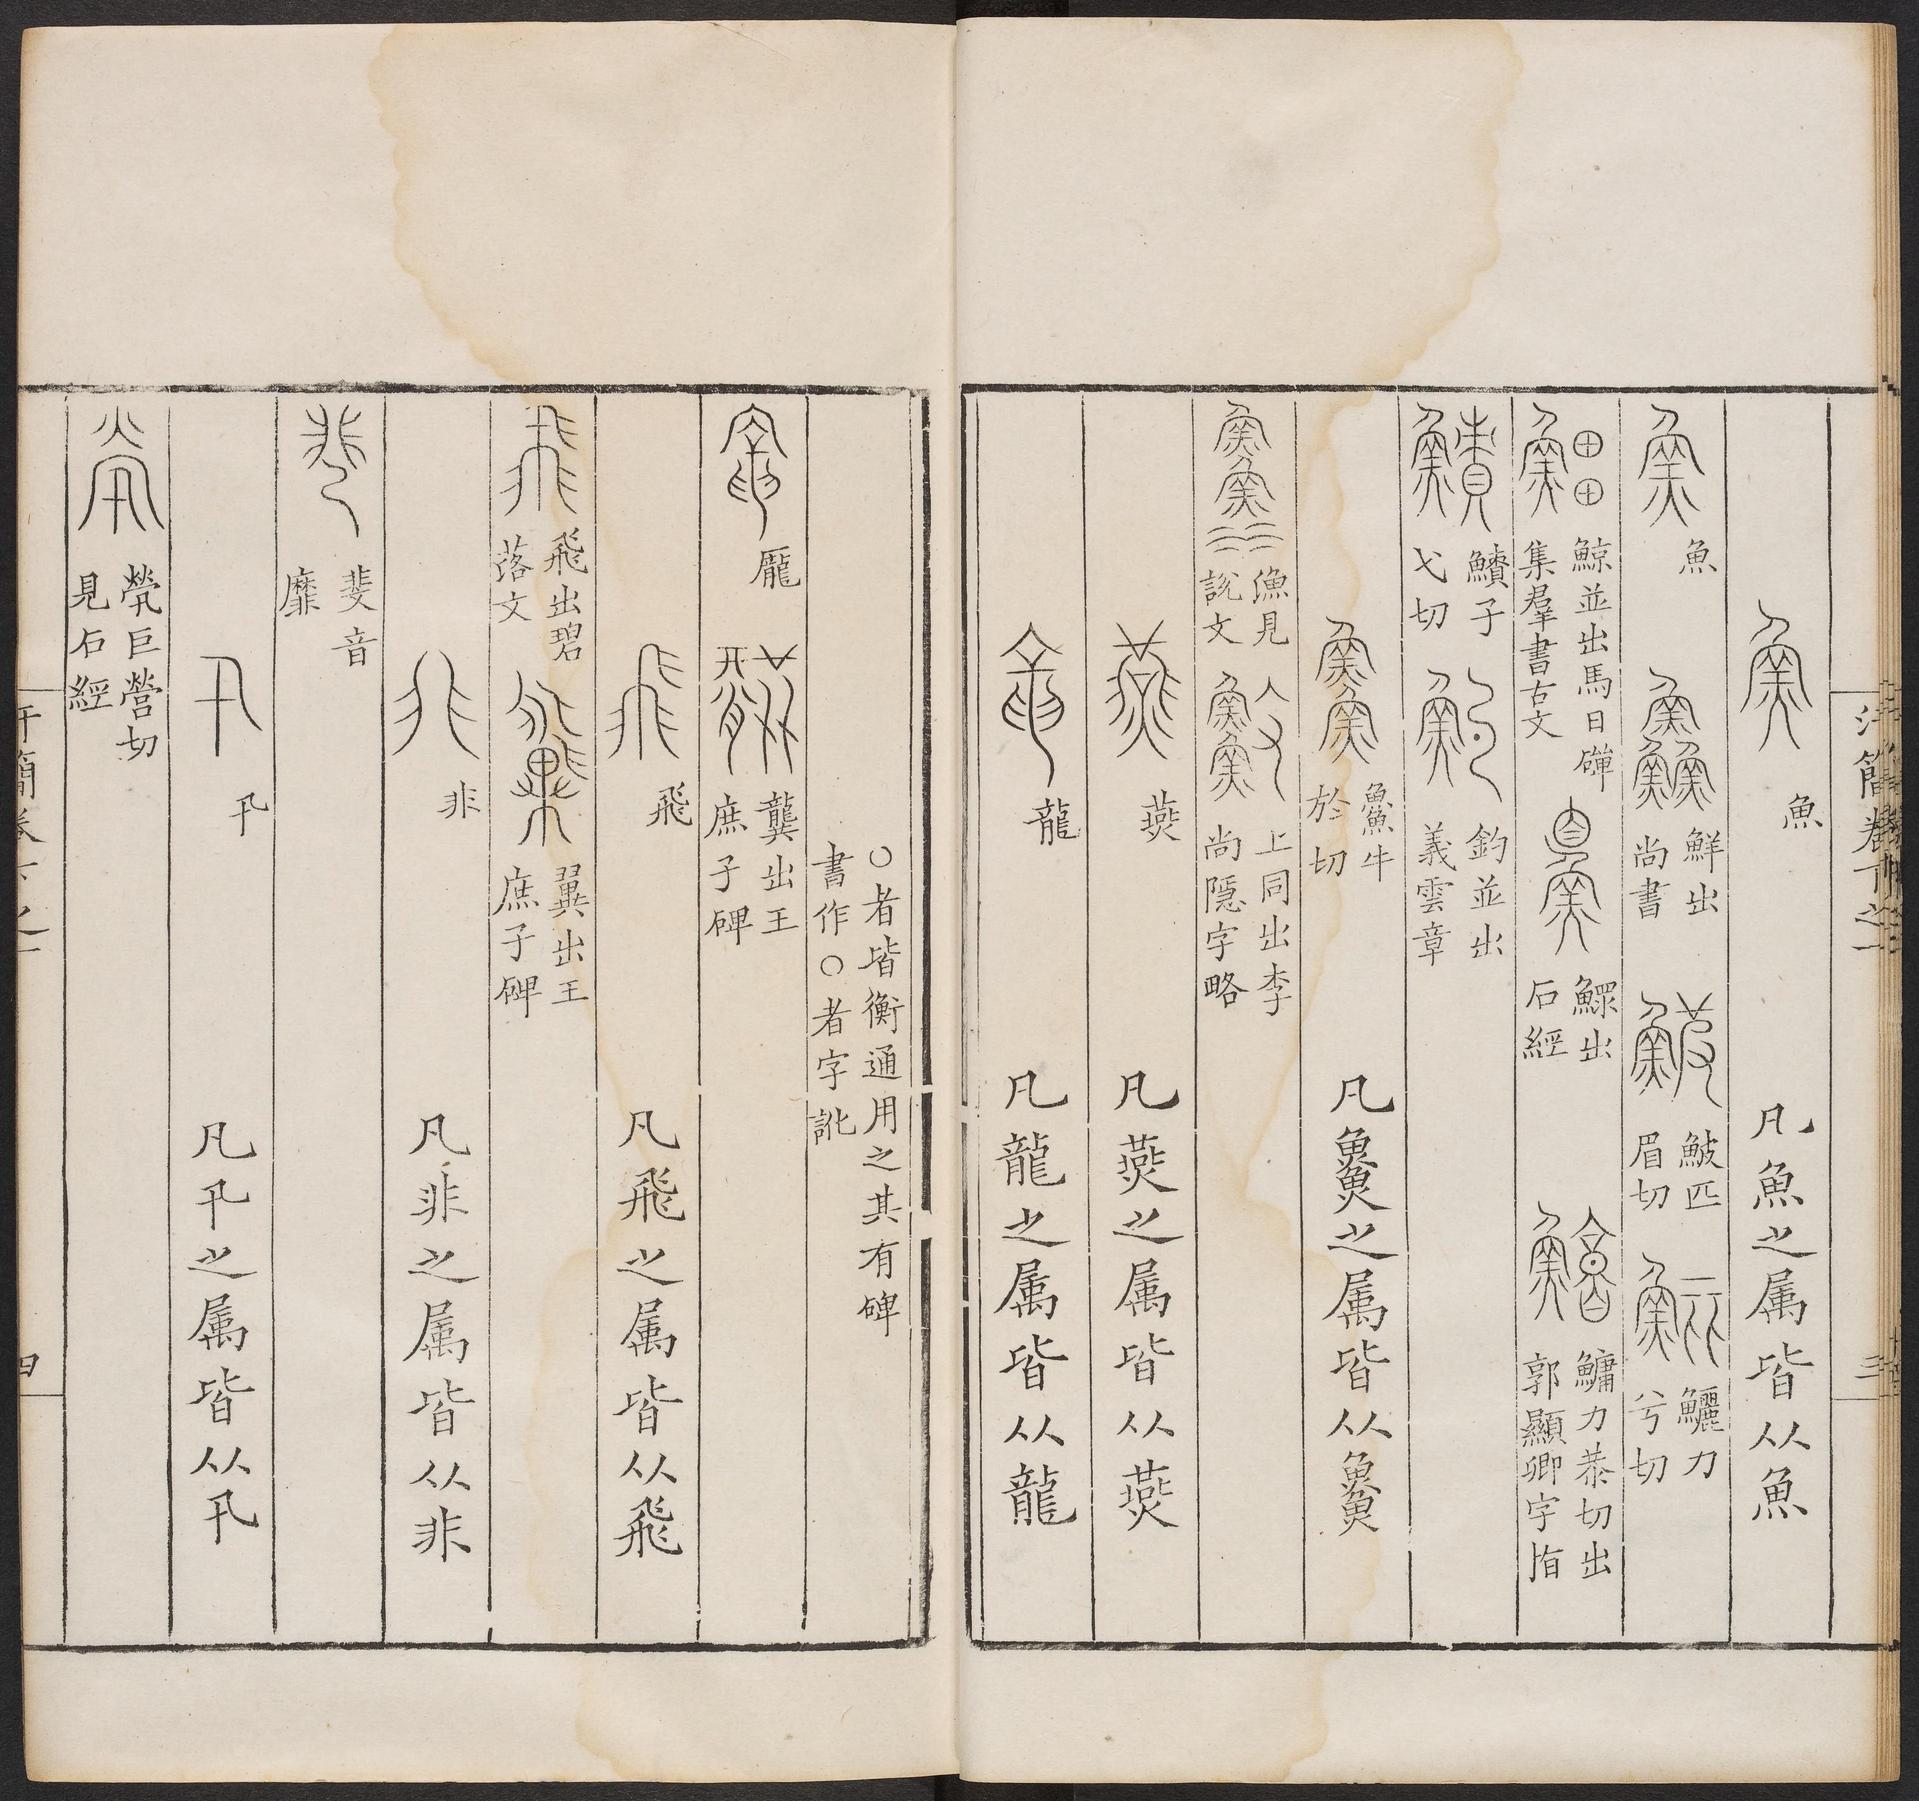 汗簡卷下之一 三
魚 凡魚之属皆从魚
魚 鮮出尚書 鮍匹眉切 鱺力兮切
鯨並出馬日磾集羣書古文 鰥出石經 鱅力恭切出郭顯卿字指
鰿子弋切 釣並出義雲章
䲆牛於切 凡䲆之属皆从䲆
漁見說文 上同出李尚隱字略
燕 凡燕之属皆从燕
龍 凡龍之属皆从龍
○者皆衡通用之其有碑書作○者字訛
龎 龔出王庶子碑
飛 凡飛之属皆从飛
飛出碧落文 翼出王庶子碑
非 凡非之属皆从非
斐音靡
卂 凡卂之属皆从卂
煢巨營切見石經
汗簡卷下之一 四